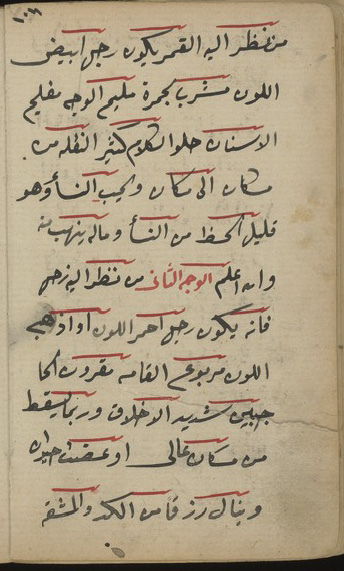 ١٠٤
من نظر اليه القمر يكون رجل ابيض
اللون مشرب بحمرة مليح الوجه مفلج
الاسنان حلو الكلام كثير النقله من
مكان الى مكان ويحب النسا وهو
قليل الحظ من النسا وماله ينهب منه
والله اعلم الوجه الثانى من نظر اليه زحل
فانه يكون رجل احمر اللون او اذهبى
اللون مربوع القامه مقرون الحا
جبين شديد الاخلاق وربما يسقط
من مكان عالى او عضة حيوان
وينال رزقا من الكد والمشقه